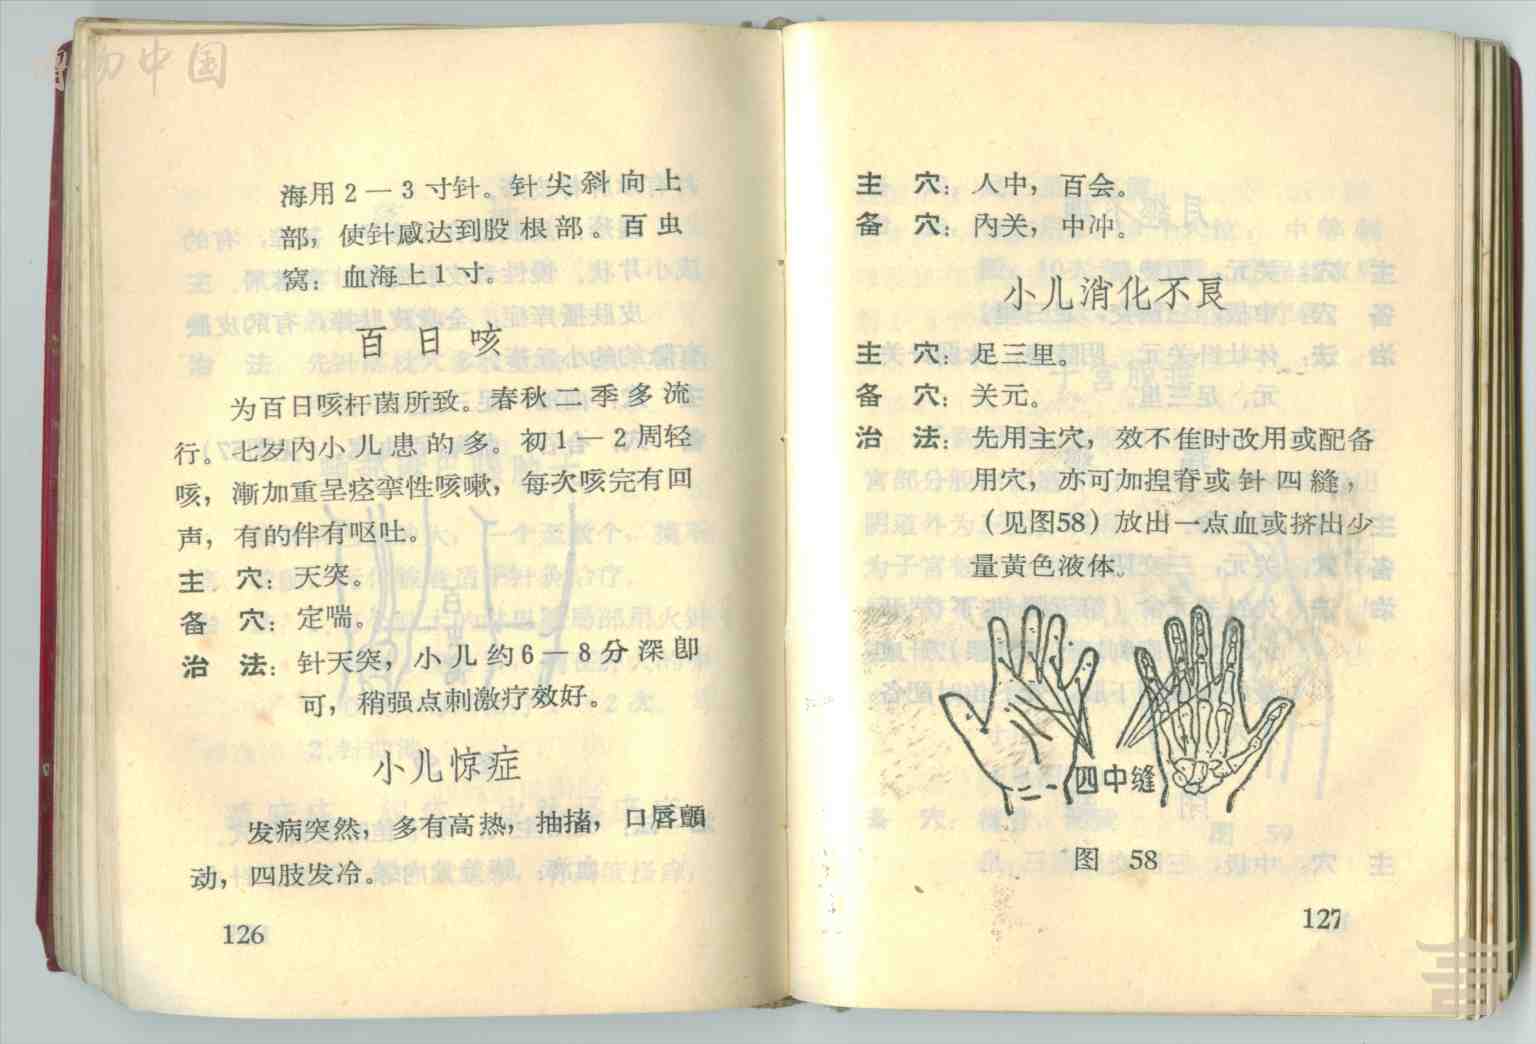 中国
海用2—3寸针。针尖斜向上
部，使针感达到股根部。百虫
窝：血海上1寸。
百日咳
为百日咳杆菌所致。春秋二季多流
行。七岁内小儿患的多。初1—2周轻
咳，渐加重呈痉挛性咳嗽，每次咳完有回
声，有的伴有呕吐。
主 穴：天突。
备 穴：定喘。
治 法：针天突，小儿约6—8分深即
可，稍强点刺激疗效好。
小儿惊症
发病突然，多有高热，抽搐，口唇顫
动，四肢发冷。
126
主 穴：人中，百会。
备 穴：内关，中冲。
小儿消化不良
主 穴：足三里。
备 穴：关元。
治 法：先用主穴，效不佳时改用或配备
用穴，亦可加捏脊或针四缝，
（见图58）放出一点血或挤出少
量黄色液体。
四中缝
图 58
127